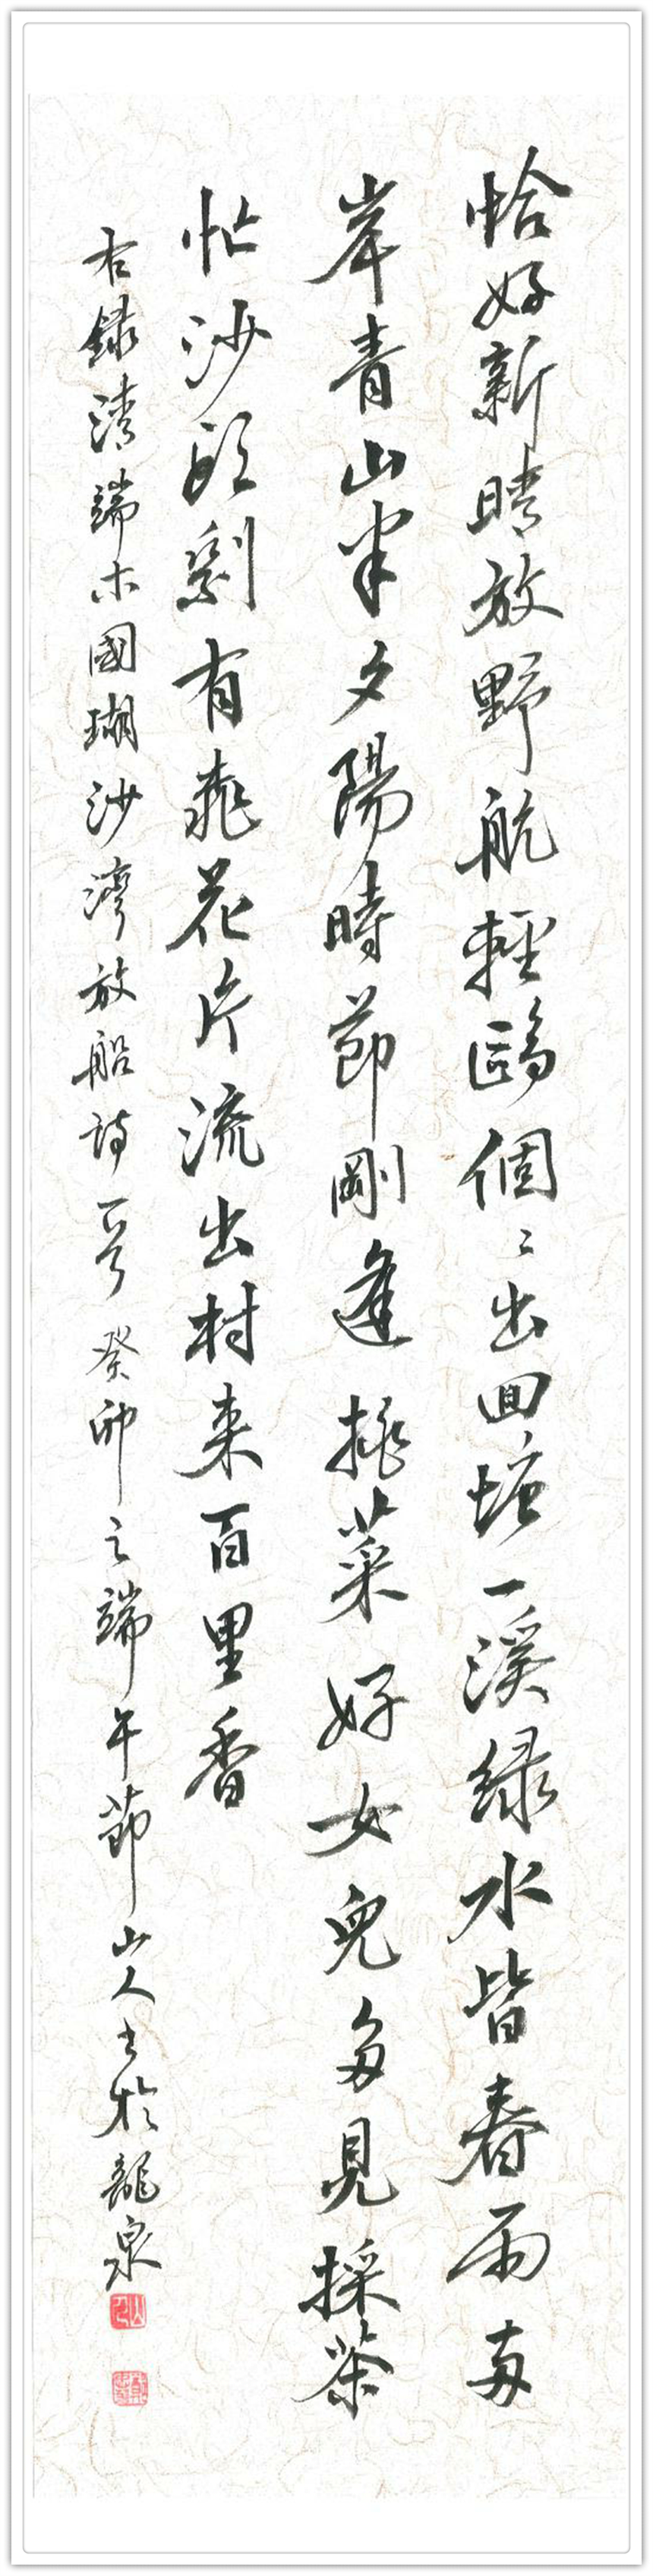 恰好新晴放野航輕鷗個々出回塘一溪綠水皆春雨両
岸青山半夕陽時節剛逢挑菜好女兒多見採茶
忙沙頭剩有桃花片流出村来百里香
右錄清端木國瑚沙灣放船詩一首癸卯之端午節山人书於龍泉
山人